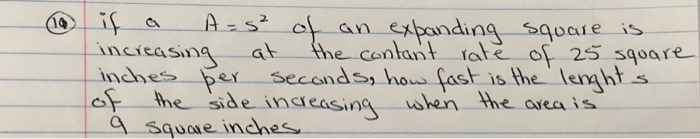 (10) if a A = s² of an expanding square is
increasing at the contant rate of 25 square
inches per seconds, how fast is the lenght s
of the side increasing when the area is
9 square inches